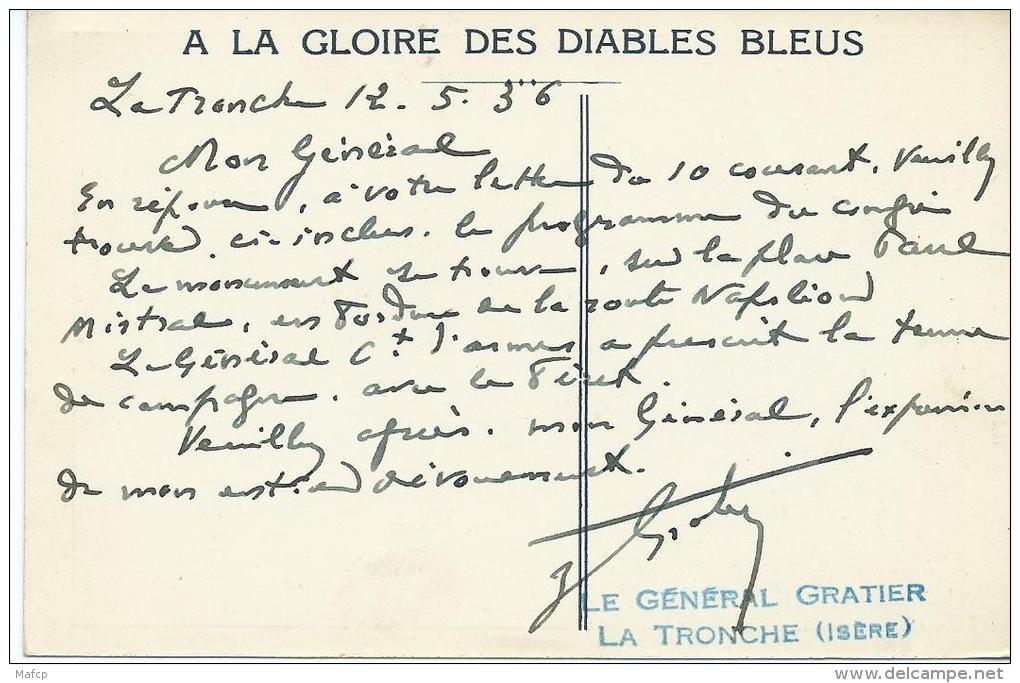 A LA GLOIRE DES DIABLES BLEUS
La Tronche 12. 5. 36
Mon Général
En réponse, à votre lettre du 10 courant, Veuillez
trouver, ci-inclus, le programme du congrès
Le monument se trouve, sur la place Paul
Mistral, en bordure de la route Napoléon
Le Général Ct d'armes a prescrit la tenue
de campagne, avec le Béret.
Veuillez agréer, mon Général, l'expression
de mon entier dévouement.
LE GÉNÉRAL GRATIER
LA TRONCHE (ISÈRE)
Mafcp
delcampe.net